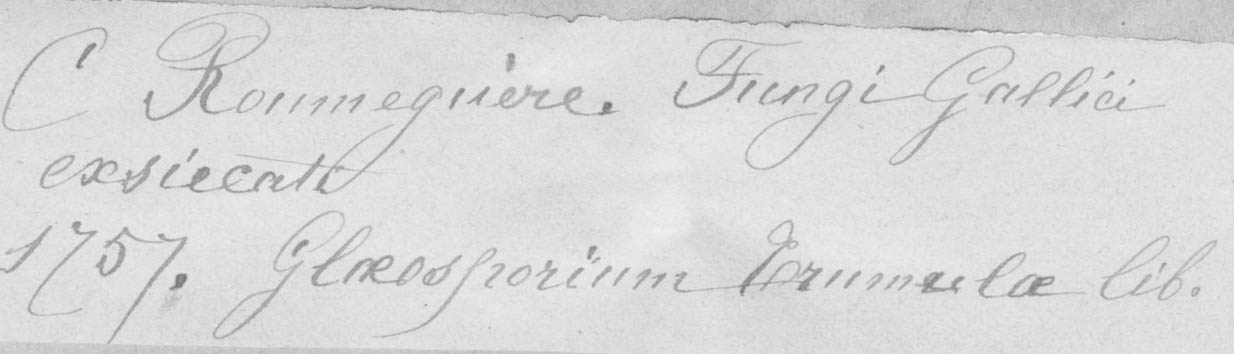 C Roumeguère. Fungi Gallici
exsiccati
1757. Glœosporium lib.